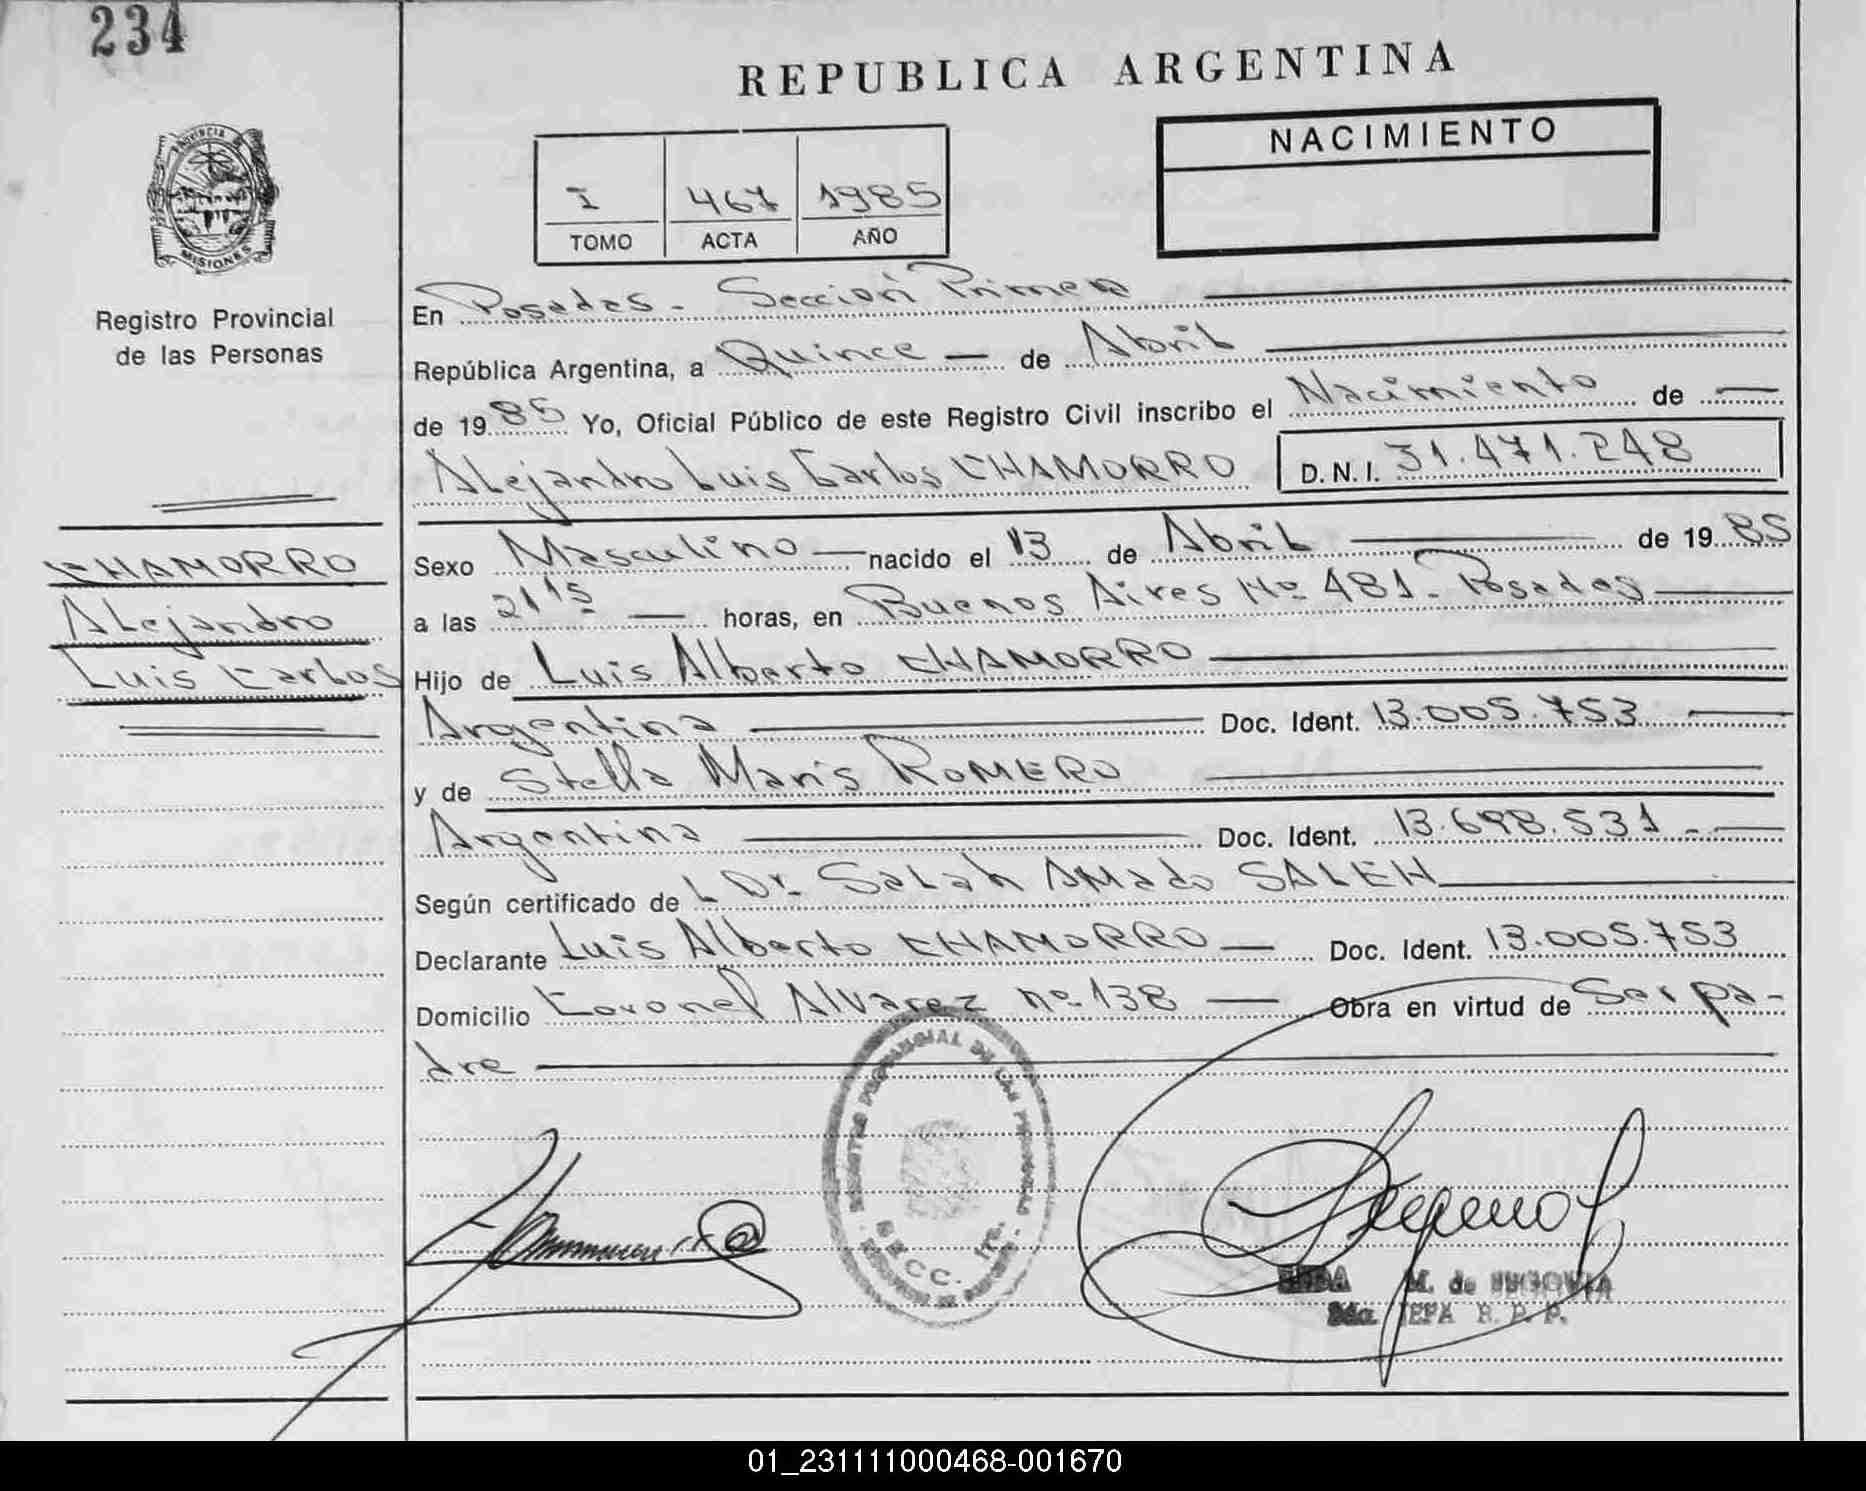 234
REPUBLICA ARGENTINA
PROVINCIA DE
MISIONES
Registro Provincial
de las Personas
I 467 1985
TOMO ACTA AÑO
NACIMIENTO
En Posadas - Sección Primera
República Argentina, a Quince — de Abril
de 1985 Yo, Oficial Público de este Registro Civil inscribo el Nacimiento de —
Alejandro Luis Carlos CHAMORRO D.N.I. 31.471.248
CHAMORRO
Alejandro
Luis Carlos
Sexo Masculino — nacido el 13 de Abril — de 1985
a las 21 15 — horas, en Buenos Aires Nº 481 - Posadas —
Hijo de Luis Alberto CHAMORRO —
Argentina — Doc. Ident. 13.005.753 —
y de Stella Maris ROMERO —
Argentina — Doc. Ident. 13.698.531 - —
Según certificado de L Dr. Salah Amado SALEH —
Declarante Luis Alberto CHAMORRO — Doc. Ident. 13.005.753
Domicilio Coronel Alvarez nº 138 — Obra en virtud de Ser pa-
dre —
REGISTRO PROVINCIAL DE LAS PERSONAS
SECC. 1ra.
M. de SEGOVIA
2da. JEFA R. P. P.
01_231111000468-001670